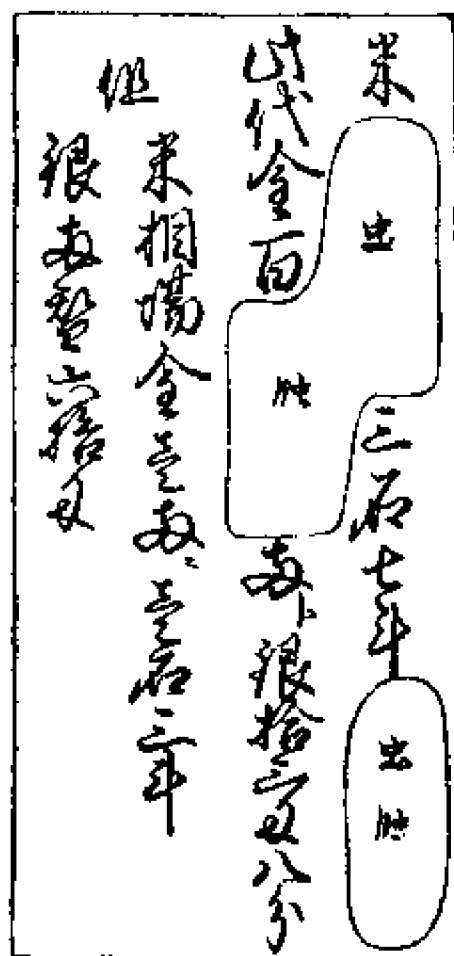 米 虫 三石七斗 虫蝕
此代金百 蝕 両ト銀拾三匁八分
但 米相場金壱両ニ壱石三斗
銀両替六拾匁